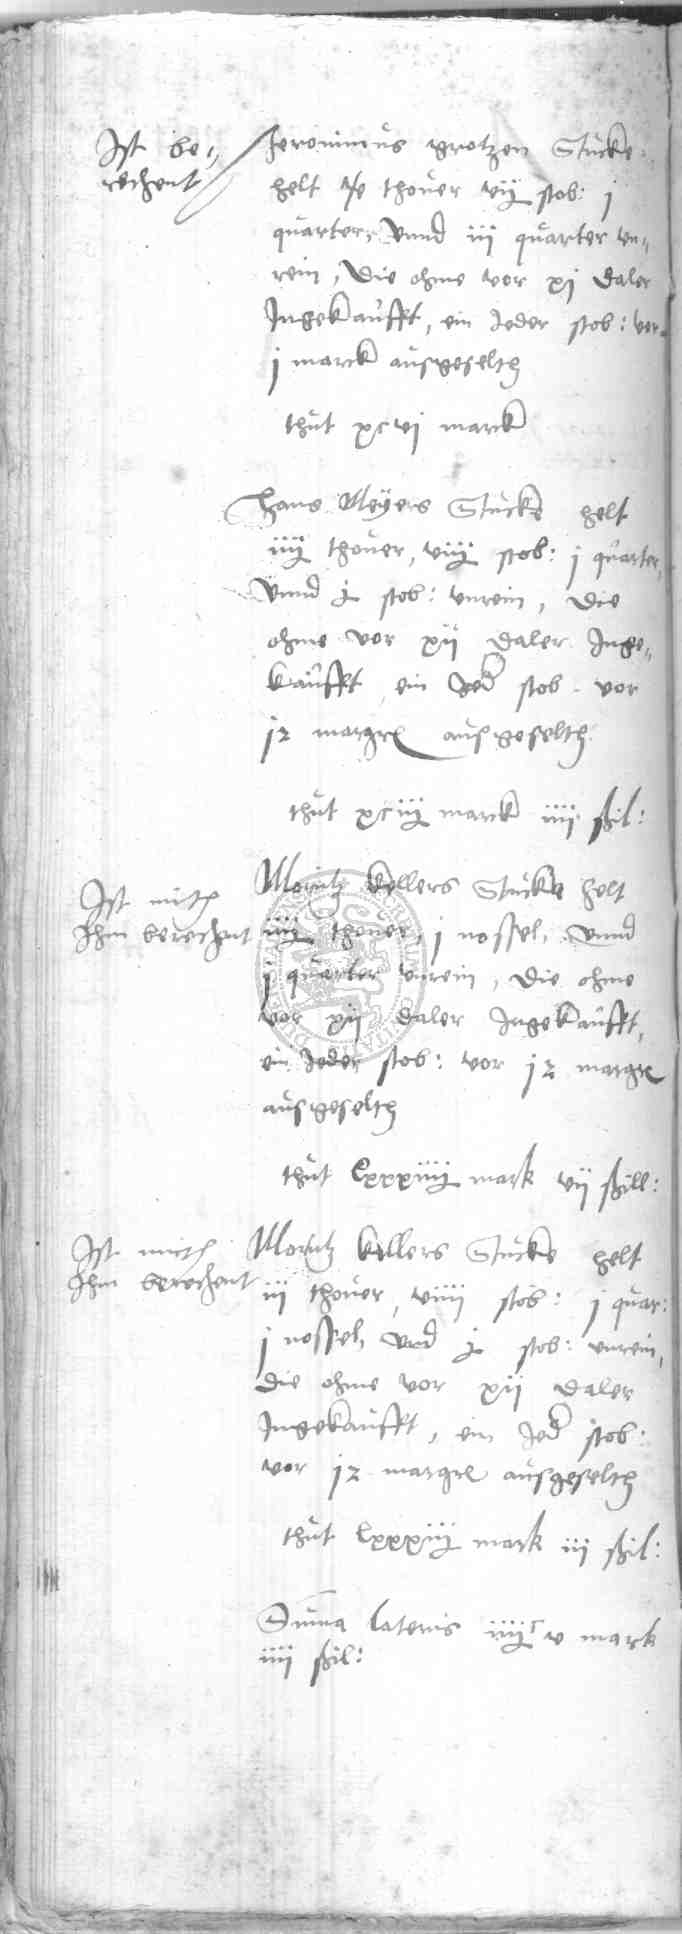 Ist be-
rechent
Jeronimus grotzen Stucke
helt thover vij stob: j
quarter, vnnd iii quarter vn-
rein, Die ohme vor xj daler
Ingekaufft, ein Jeder stob: vor
j marck ausgeselth
thut xcvj marck
Hans Meyers Stucke helt
thover, viij stob: j quarter,
vnnd stob: vnrein, Die
ohme vor xij daler Inge-
kaufft ein Jed stob vor
ausgeselth
thut marck iiii ßil:
Ist mit
Ihm berechent
Moritz kellers Stucke helt
thover, j nossel, vnnd
j quarter vnrein, Die ohme
vor xij daler Ingekaufft,
ein Jeder stob: vor
ausgeselth
thut mark vij ßill:
Ist mit
Ihm berechent
Moritz kellers Stucke helt
iii thover, viiii stob: j quar:
j nossel, vnd stob: vnrein,
die ohme vor xij daler
Ingekaufft, ein Jed stob:
vor ausgeselth
thut mark iii ßil:
Suma lateris v mark
iiii ßil: